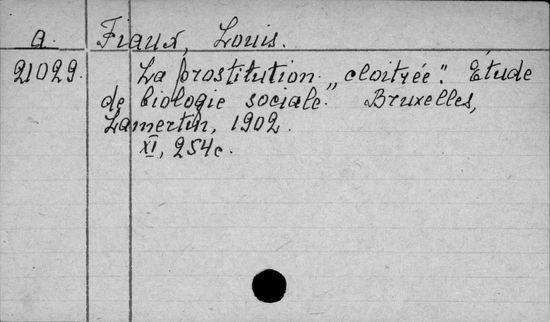 a Fiaux, Louis.
21029 La prostitution „cloitrée". Étude
de biologie sociale. Bruxelles,
Lamertin, 1902.
XI, 254c.